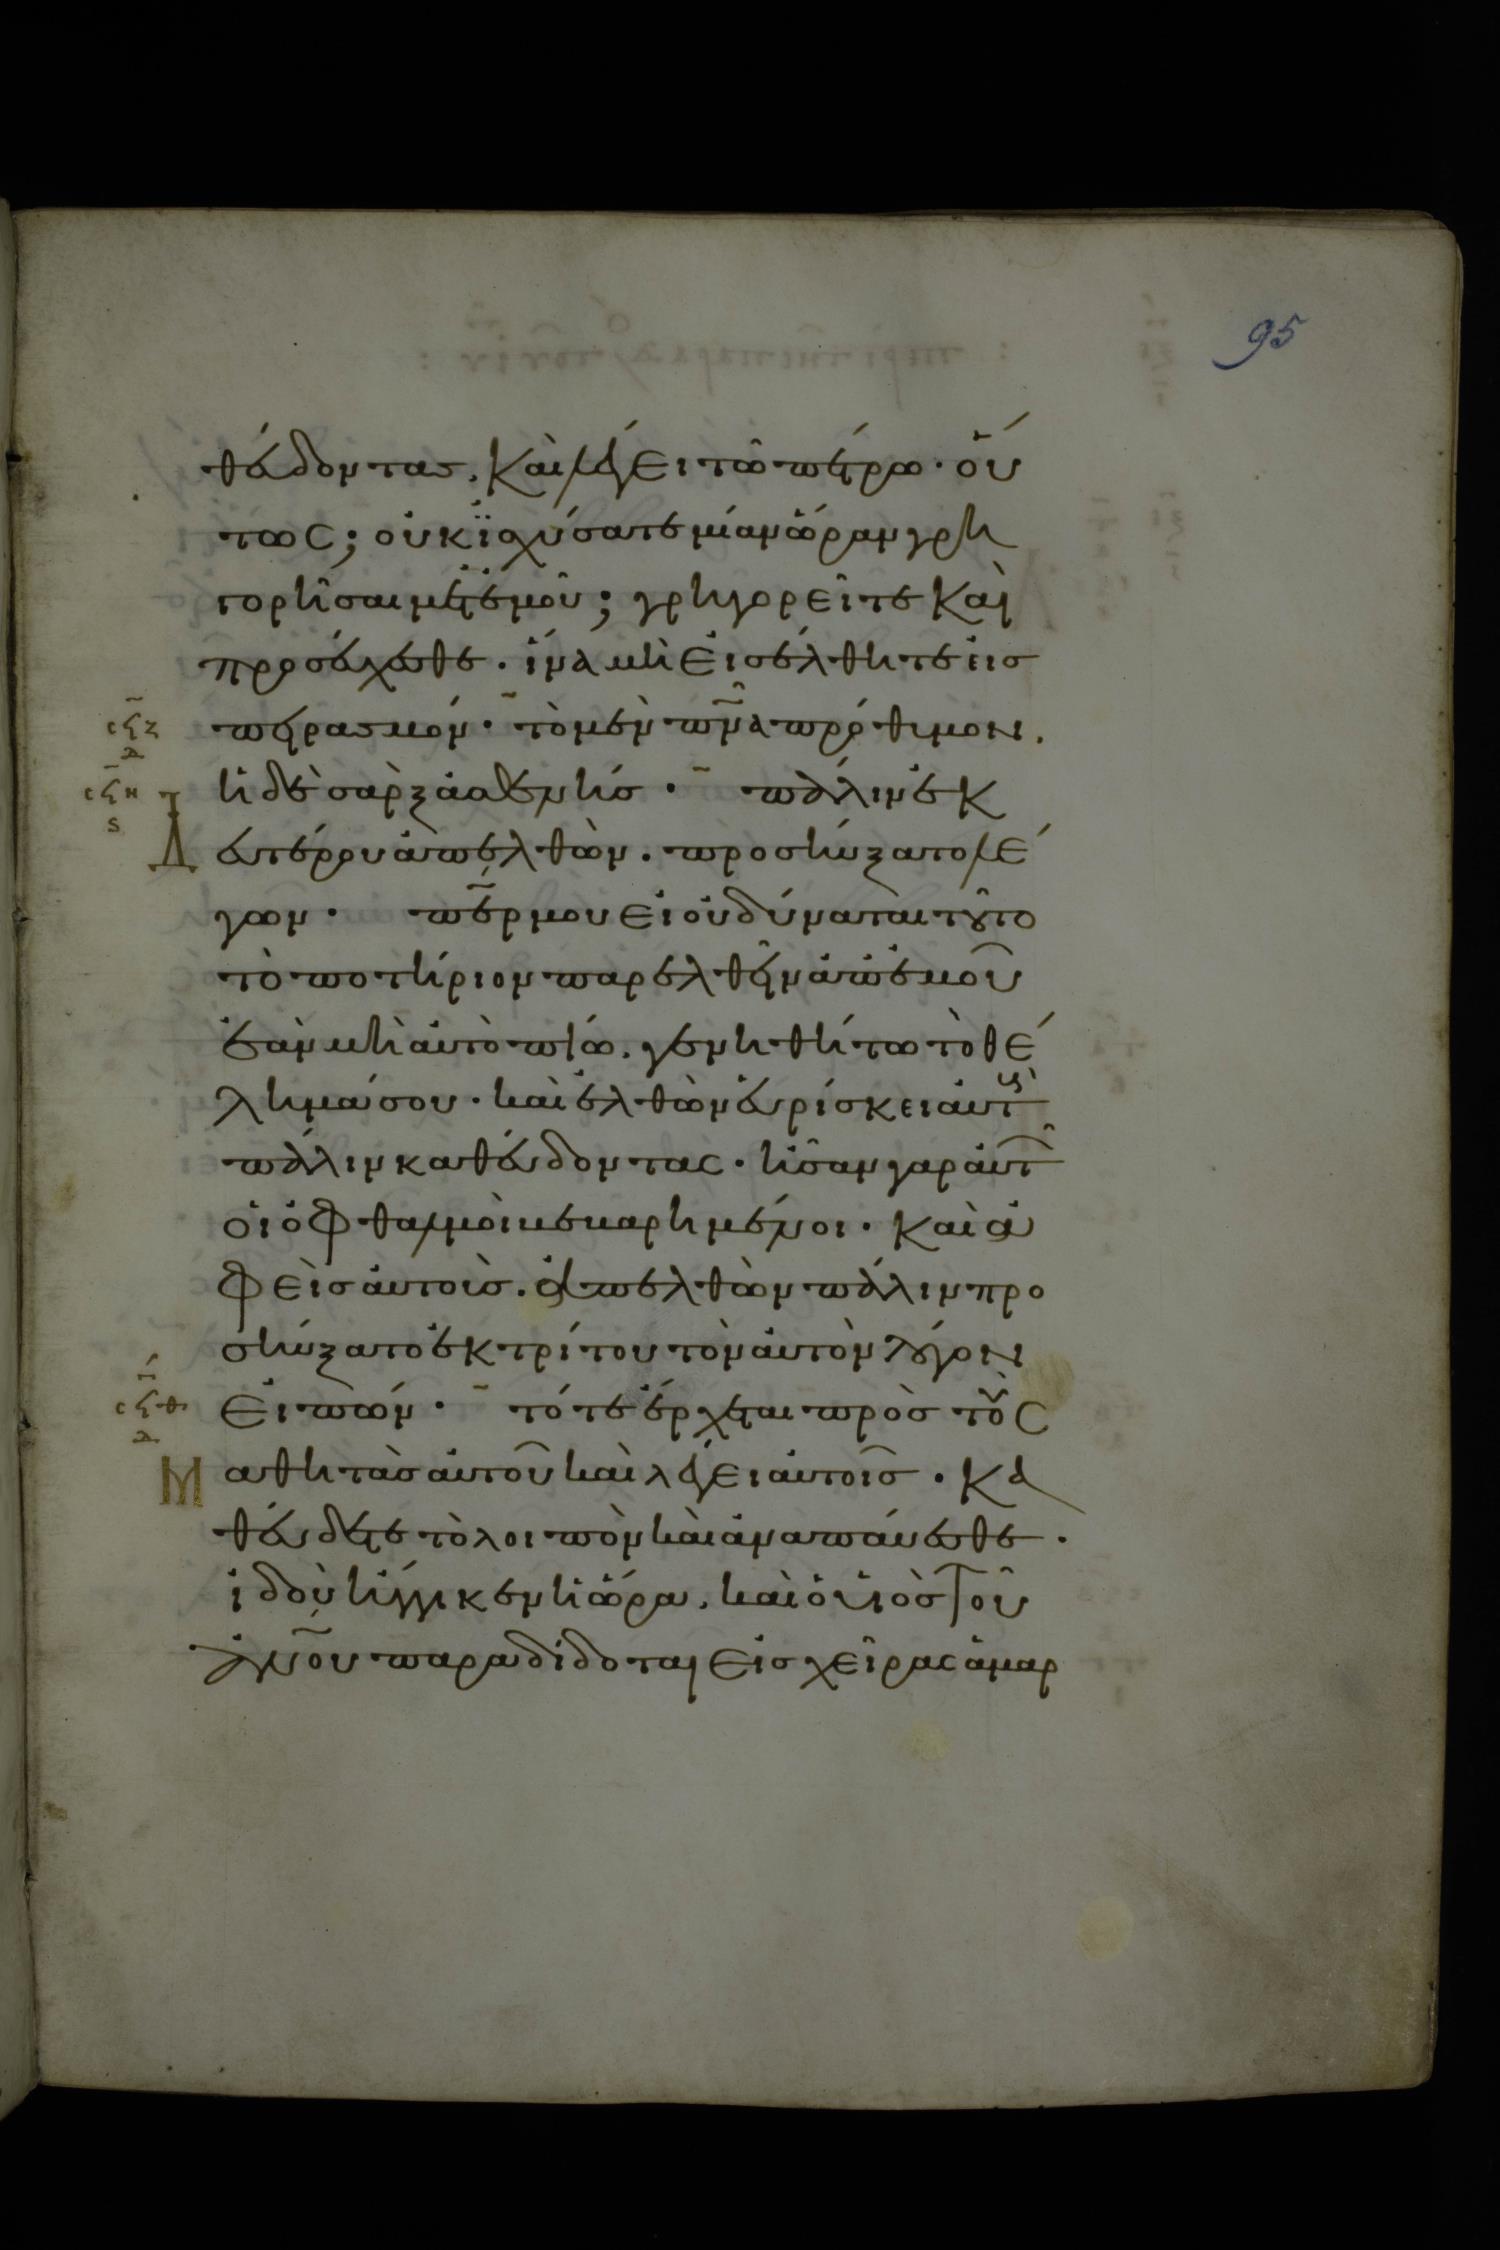 95
θεύδοντας. Καὶ λέγει τῶ πέτρω· οὕ
τως; οὐκ ἰσχύσατε μίαν ὥραν γρη
γορῆσαι μετ' ἐμοῦ; γρηγορεῖτε καὶ
προσεύχεσθε. ἵνα μὴ εἰσέλθητε εἰς
σξζ δ πειρασμόν· τὸ μὲν πν̅α πρόθυμον.
σξη ς ἡ δὲ σὰρξ ἀσθενής· πάλιν ἐκ
Δ ευτέρου ἀπελθὼν. προσηύξατο λέ
γων· πε̅ρ μου εἰ οὐ δύναται τοῦτο
τὸ ποτήριον παρελθεῖν ἀπ' ἐμοῦ
ἐὰν μὴ αὐτὸ πίω. γενηθήτω τὸ θέ
λημά σου· καὶ ἐλθὼν εὑρίσκει αὐτοὺς
πάλιν καθεύδοντας· ἦσαν γὰρ αὐτῶν
οἱ ὀφθαλμοὶ βεβαρημένοι· Καὶ ἀ
φεὶς αὐτοὺς. ἀπελθὼν πάλιν προ
σηύξατο ἐκ τρίτου τὸν αὐτὸν λόγον
σξθ δ εἰπών· τότε ἔρχεται πρὸς τοὺς
Μ αθητὰς αὐτοῦ καὶ λέγει αὐτοῖς· Κα
θεύδετε τὸ λοιπὸν καὶ ἀναπαύεσθε·
ἰδοὺ ἤγγικεν ἡ ὥρα. καὶ ὁ υἱὸς τοῦ
ἀν̅ου παραδίδοται εἰς χεῖρας ἁμαρ